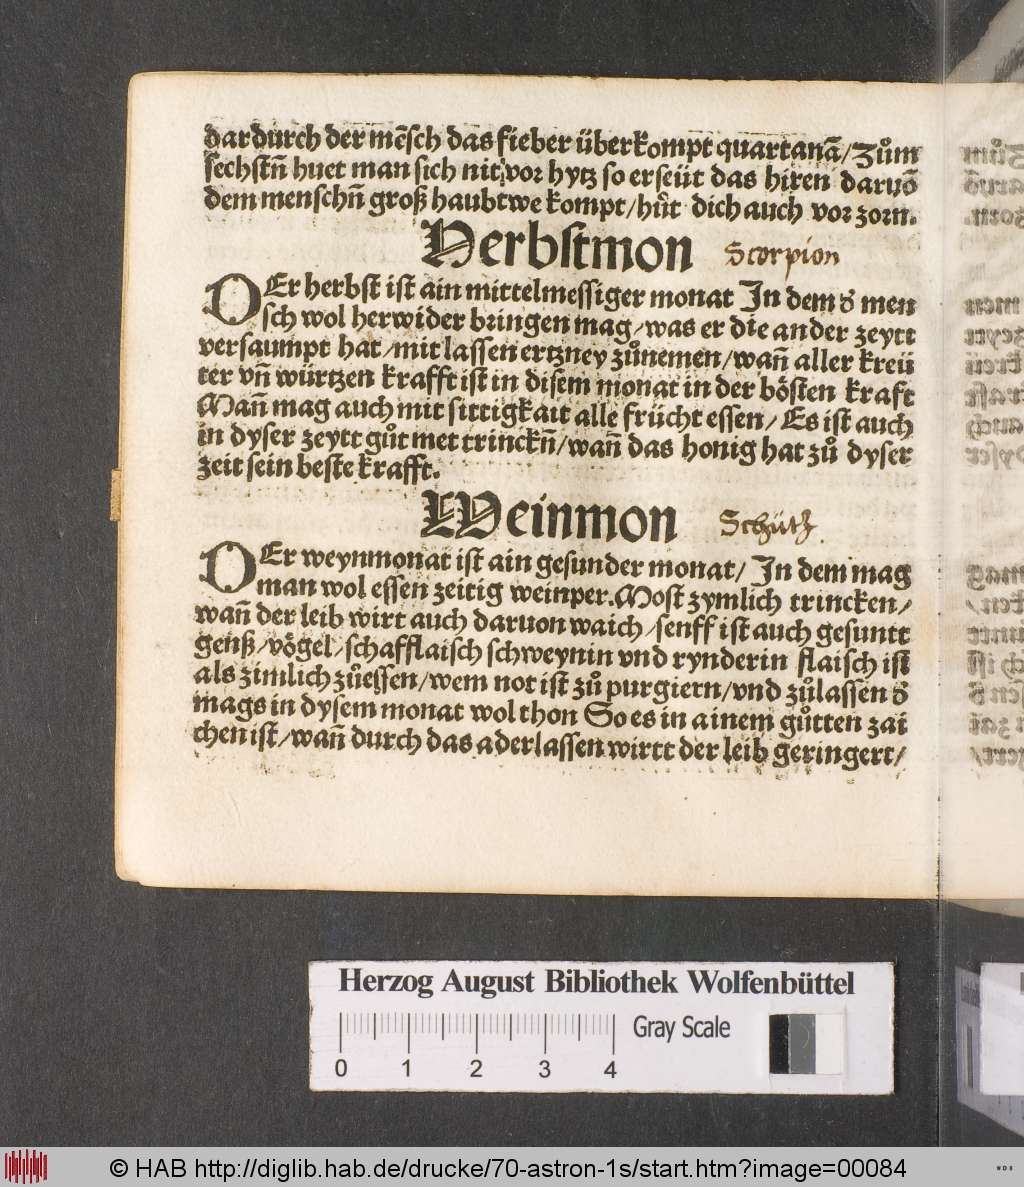 dardurch der mēsch das fieber überkompt quartanā/Zům
sechstn̄ huet man sich nit vor hytz so erseüt das hiren daruō
dem menschn̄ groß haubtwe kompt/hůt dich auch vor zorn.
Herbstmon Scorpion
DEr herbst ist ain mittelmessiger monat In dem d̓ men
sch wol herwider bringen mag/was er die ander zeytt
versaumpt hat/mit lassen ertzney zůnemen/wan̄ aller kreü
ter vn̄ würtzen krafft ist in disem monat in der bösten kraft
Man̄ mag auch mit sittigkait alle frücht essen/Es ist auch
in dyser zeytt gůt met trinckn̄/wan̄ das honig hat zů dyser
zeit sein beste krafft.
Weinmon Schütz.
DEr weynmonat ist ain gesunder monat/In dem mag
man wol essen zeitig weinper.Most zymlich trincken/
wan̄ der leib wirt auch daruon waich/senff ist auch gesuntt
genß/vögel/schafflaisch schweynin vnd rynderin flaisch ist
als zimlich zůessen/wem not ist zů purgiern/vnd zůlassen d̓
mags in dysem monat wol thon So es in ainem gůtten zai
chen ist/wan̄ durch das aderlassen wirtt der leib geringert/
Herzog August Bibliothek Wolfenbüttel
Gray Scale
0 1 2 3 4
© HAB http://diglib.hab.de/drucke/70-astron-1s/start.htm?image=00084